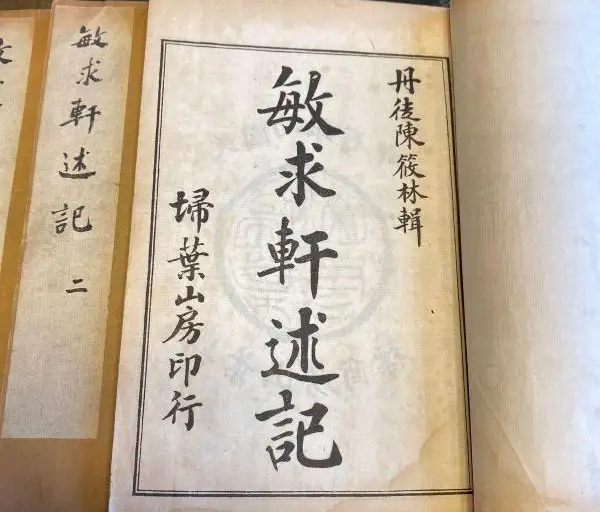 丹徒陳筱林輯
敏求軒述記
埽葉山房印行
敏求軒述記 二